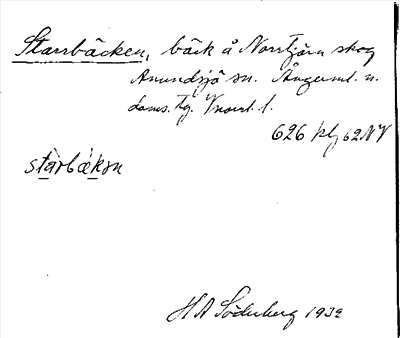 Starrbäcken, bäck å Norrtjärn skog
Anundsjö sn. Ångerml. n.
doms. tg. V norrl. l.
626 kbl 62 NV
stàrbækən
H A Söderberg 1932